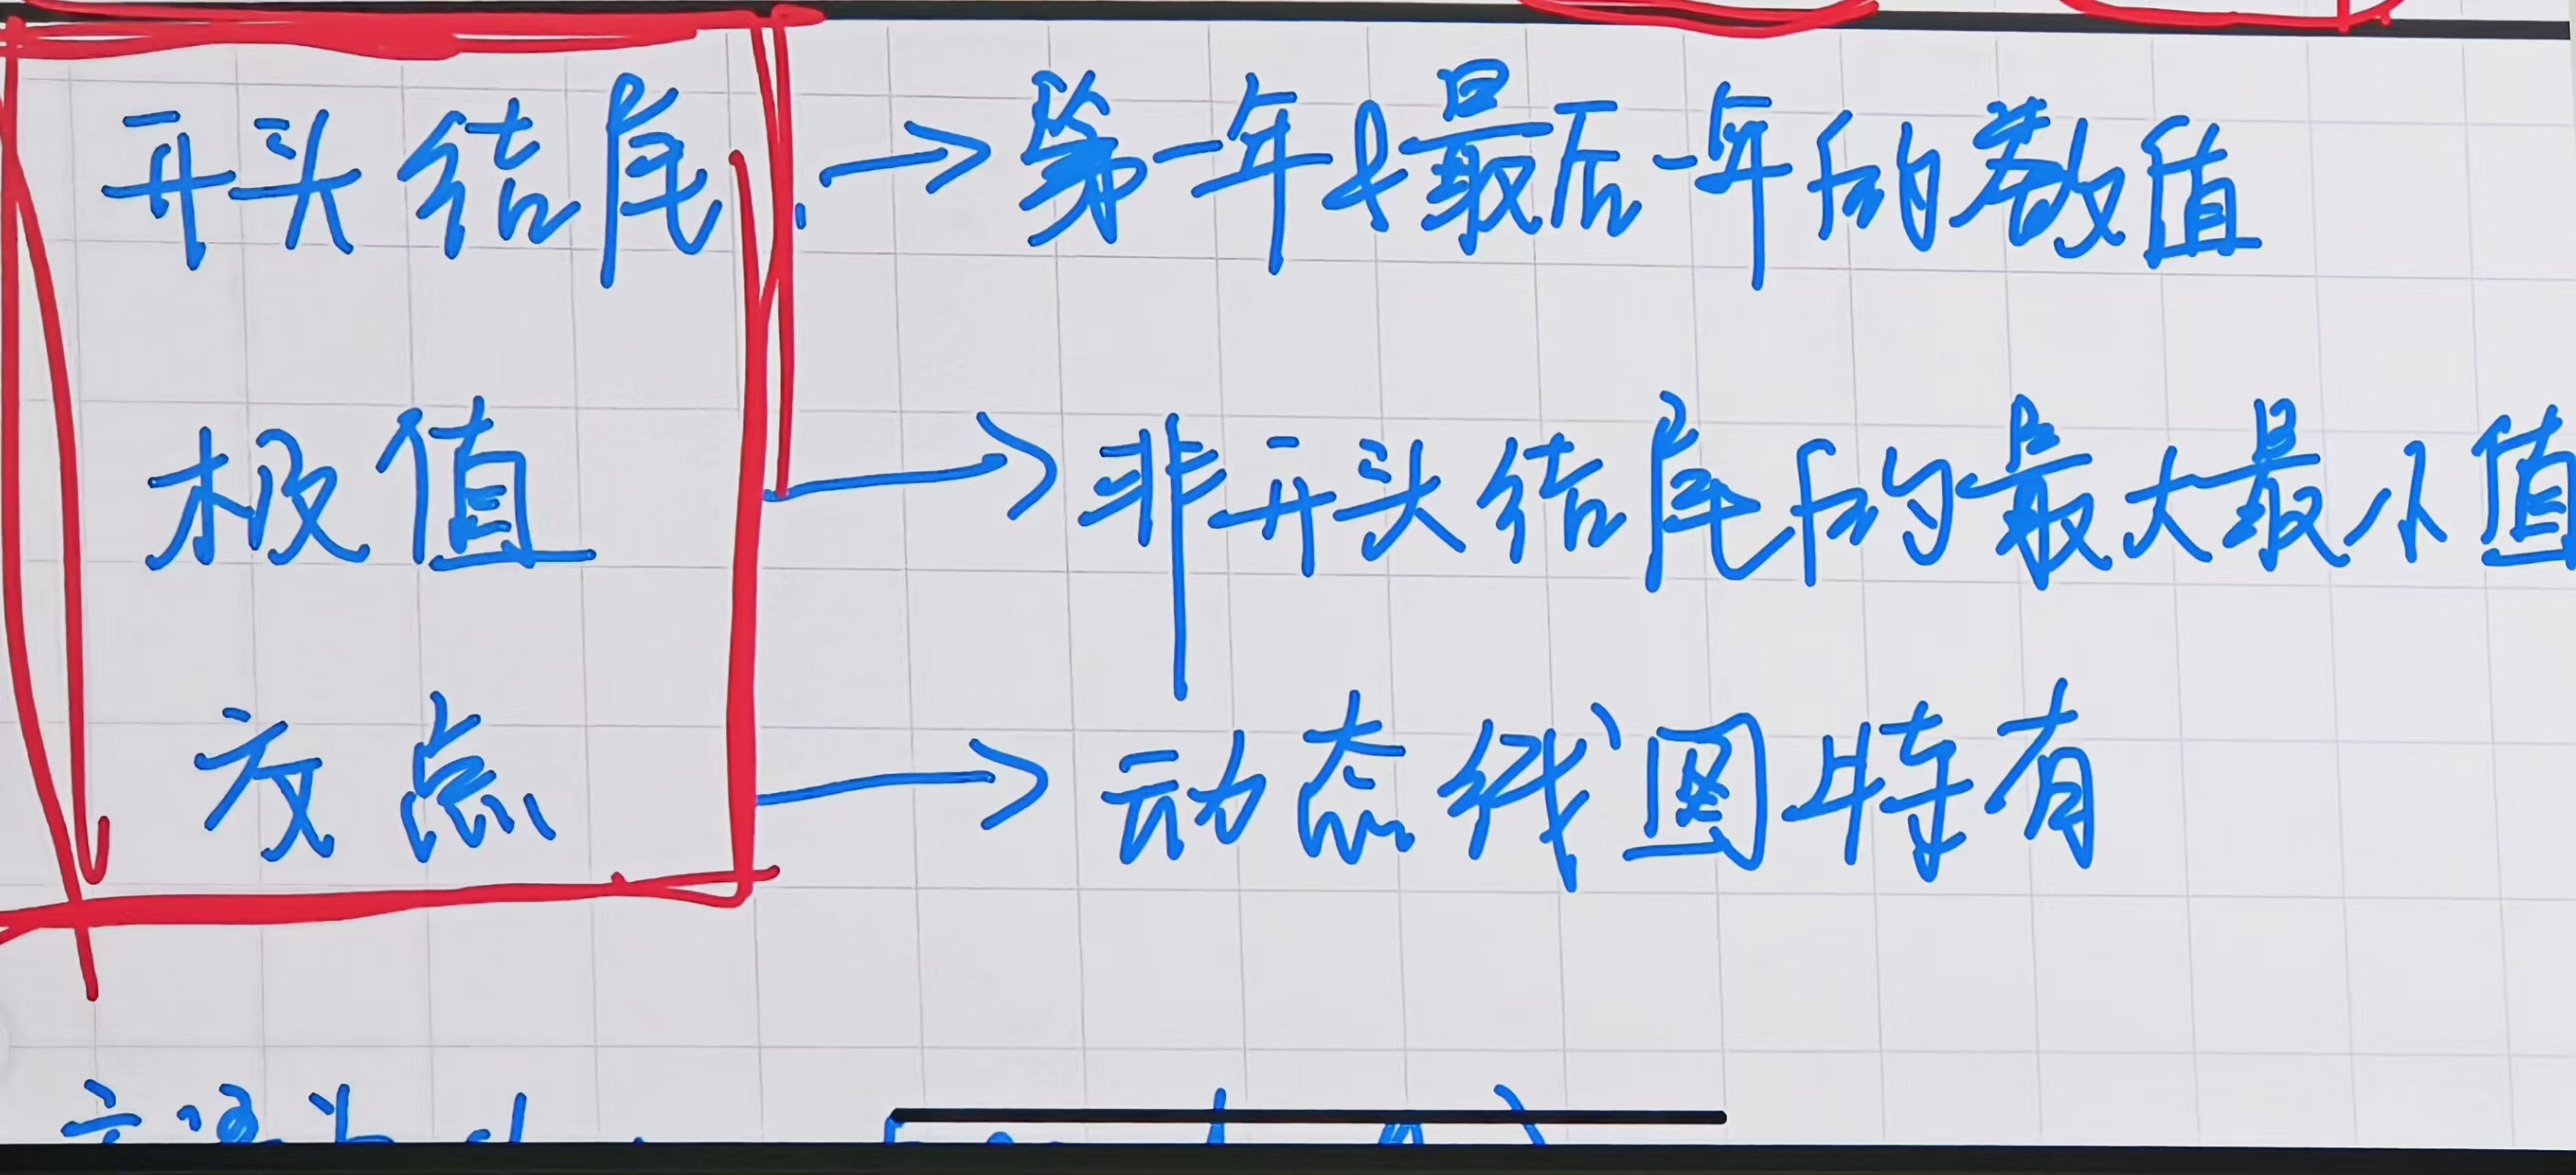 开头结尾 → 第一年&最后一年的数值
极值 → 非开头结尾的最大最小值
交点 → 动态线图特有